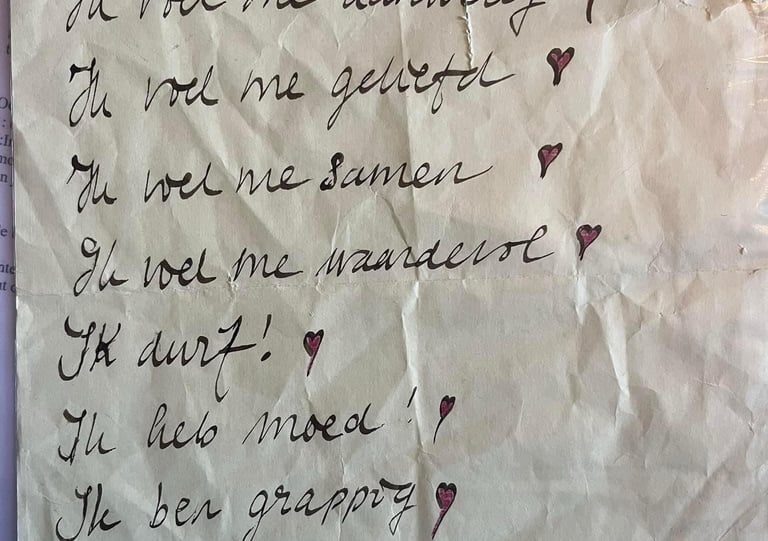 Ik voel me aanwezig !
Ik voel me geliefd
Ik voel me samen
Ik voel me waardevol
Ik durf!
Ik heb moed!
Ik ben grappig